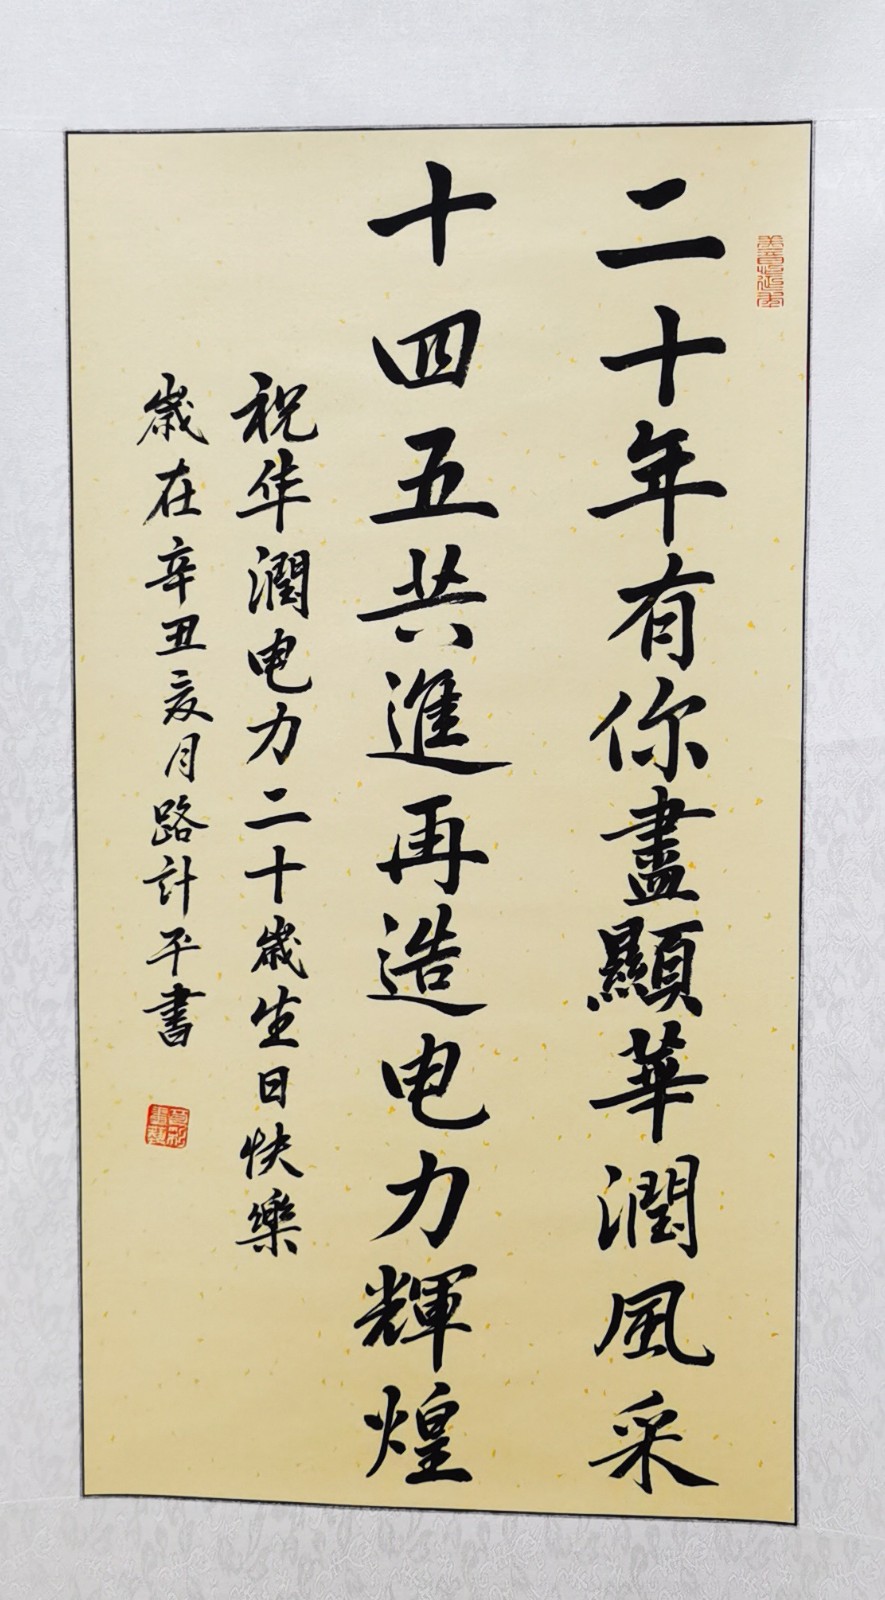 二十年有你盡顯華潤風采
十四五共進再造电力輝煌
祝华潤电力二十歲生日快樂
歲在辛丑亥月路計平書